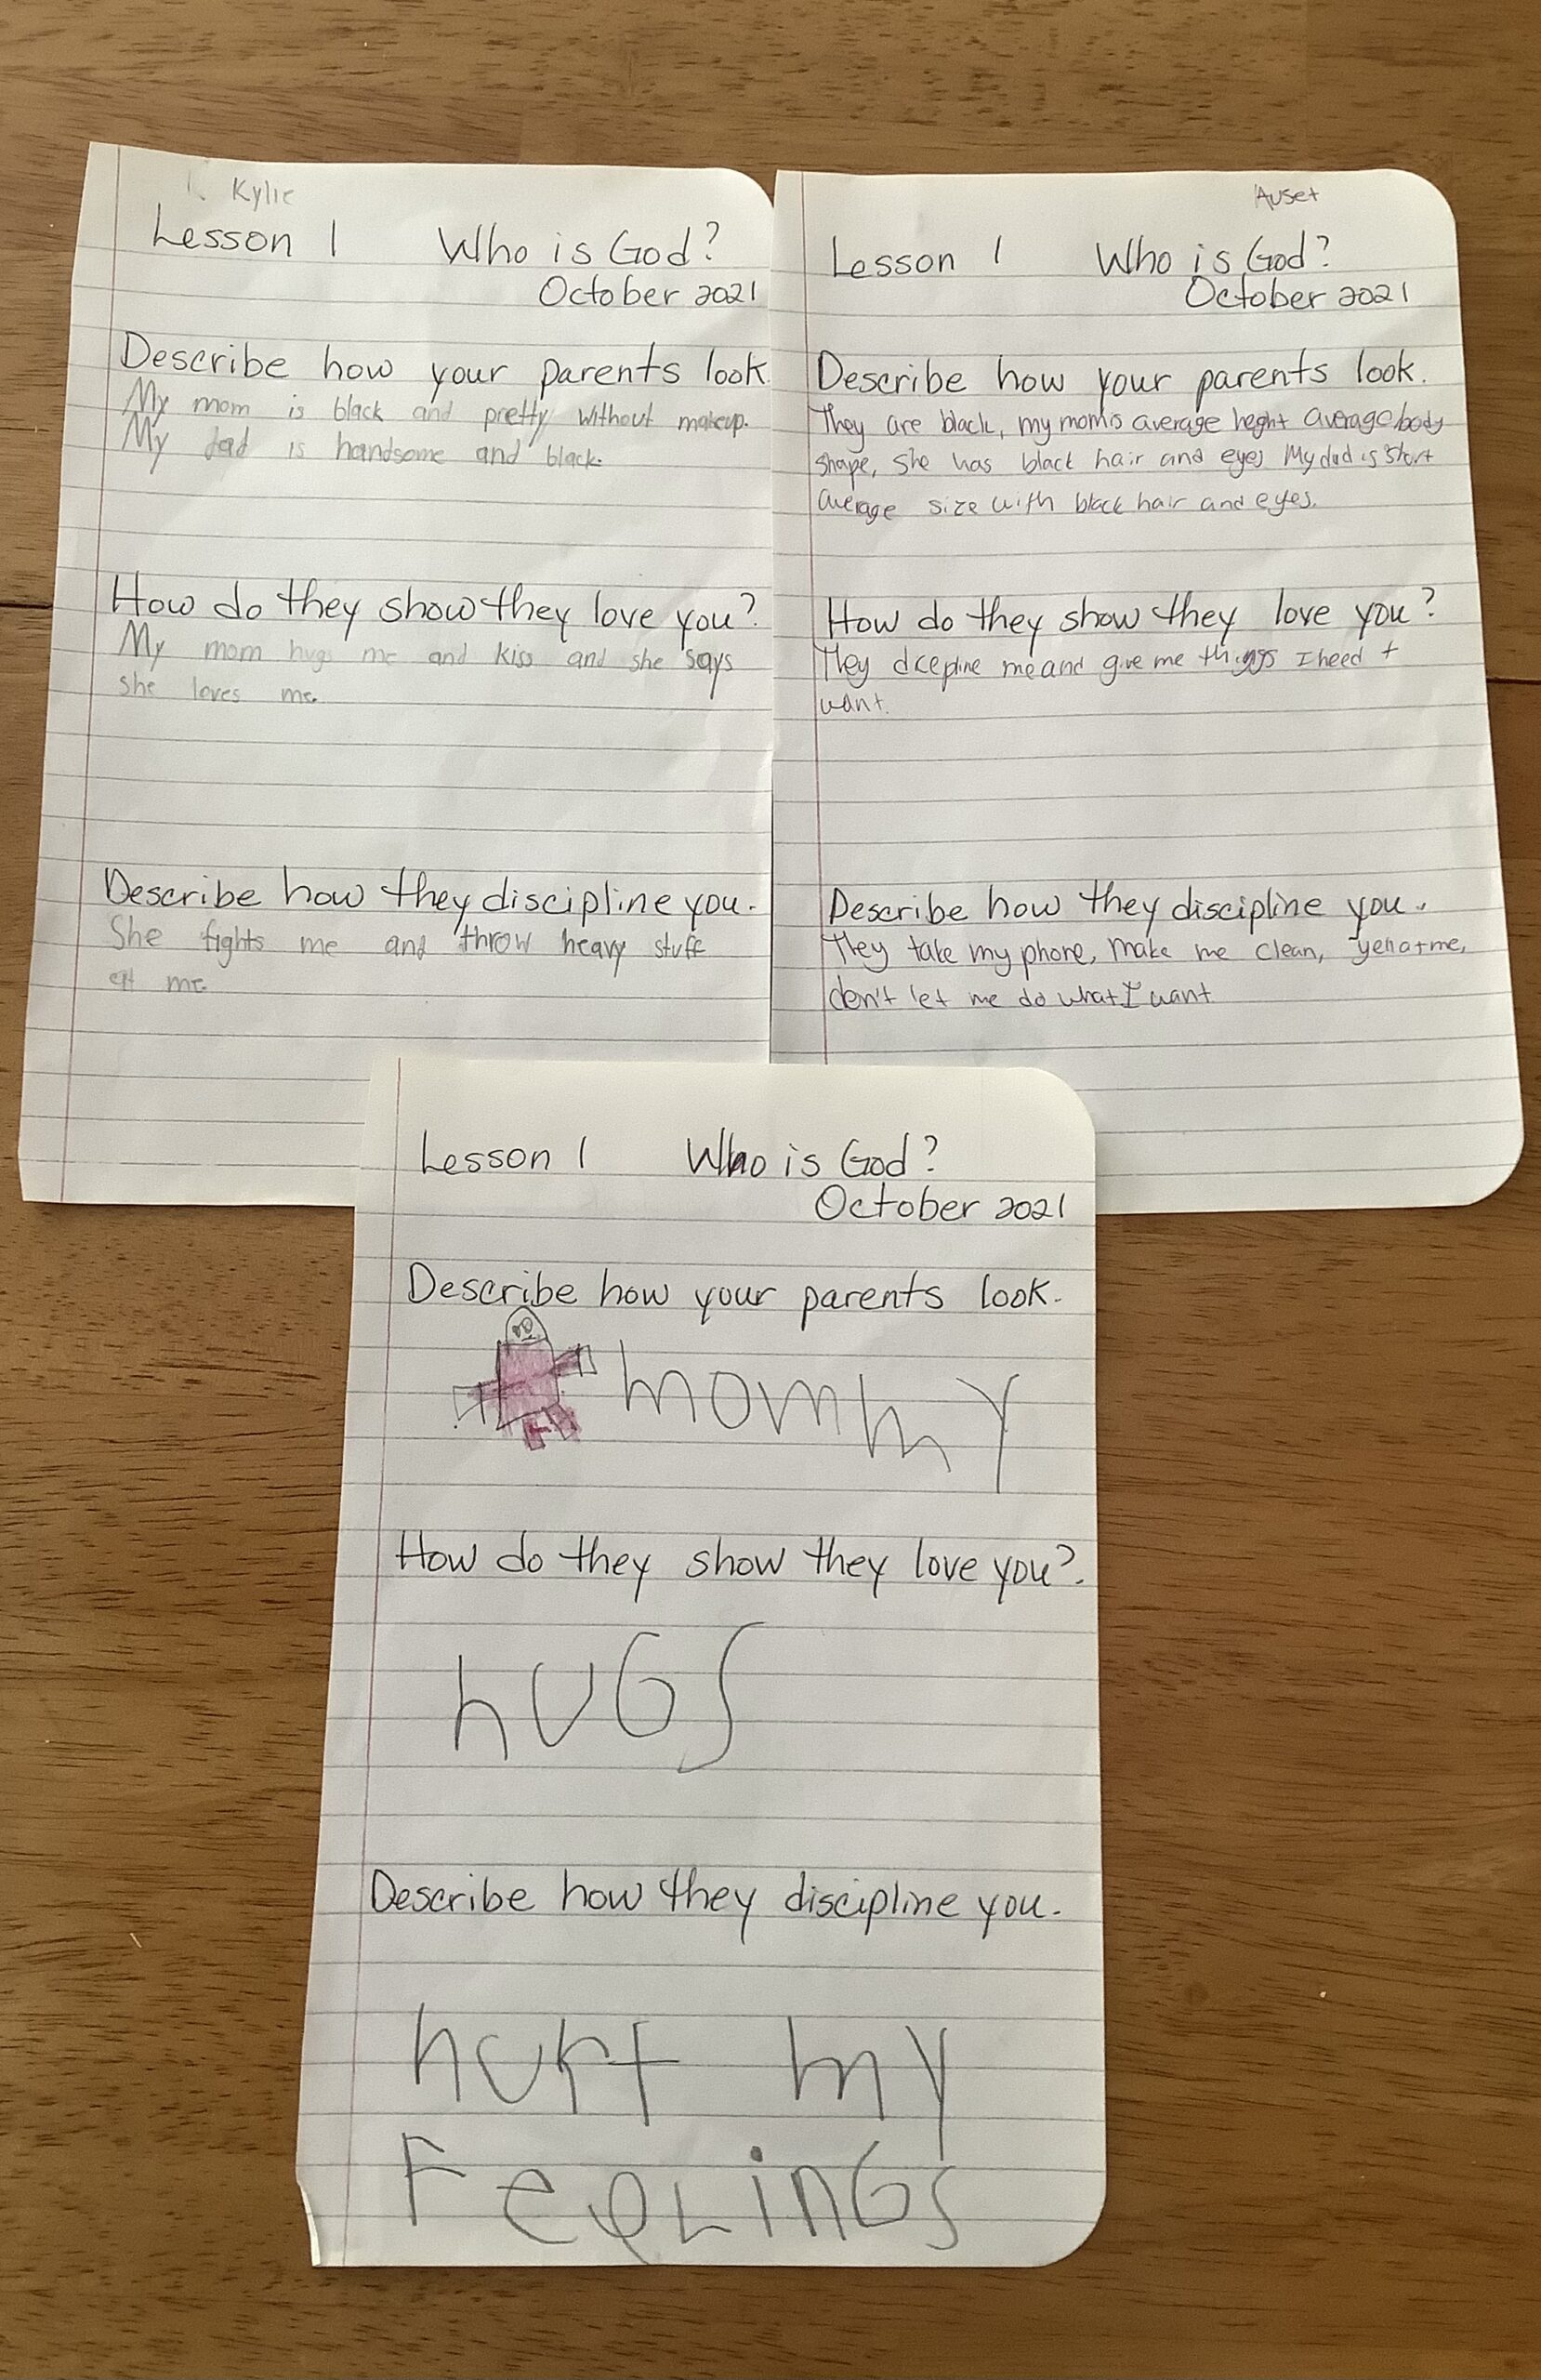 Kylie
Lesson 1 Who is God?
October 2021
Describe how your parents look.
My mom is black and pretty without makeup.
My dad is handsome and black.
How do they show they love you?
My mom hugs me and kiss and she says
she loves me.
Describe how they discipline you.
She fights me and throw heavy stuff
at me.
Auset
Lesson 1 Who is God?
October 2021
Describe how your parents look.
They are black, my mom is average heght average body
shape, she has black hair and eyes My dad is short
average size with black hair and eyes.
How do they show they love you?
They dcepline me and give me things I need +
want.
Describe how they discipline you.
They take my phone, make me clean, yell at me,
don't let me do what I want
Lesson 1 Who is God?
October 2021
Describe how your parents look.
mommy
How do they show they love you?
huGs
Describe how they discipline you.
hurt my
FeeLinGs